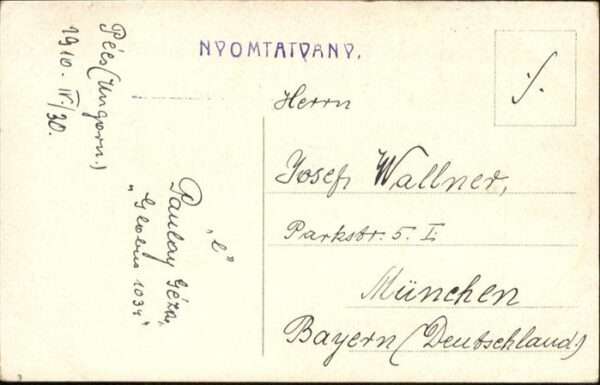 Pécs (Ungarn.)
1910. IV./30.
NYOMTATVANY.
"l"
Paulay Géza,
"Globus 1034"
Herrn
Josef Wallner,
Parkstr. 5. I.
München
Bayern (Deutschland.)